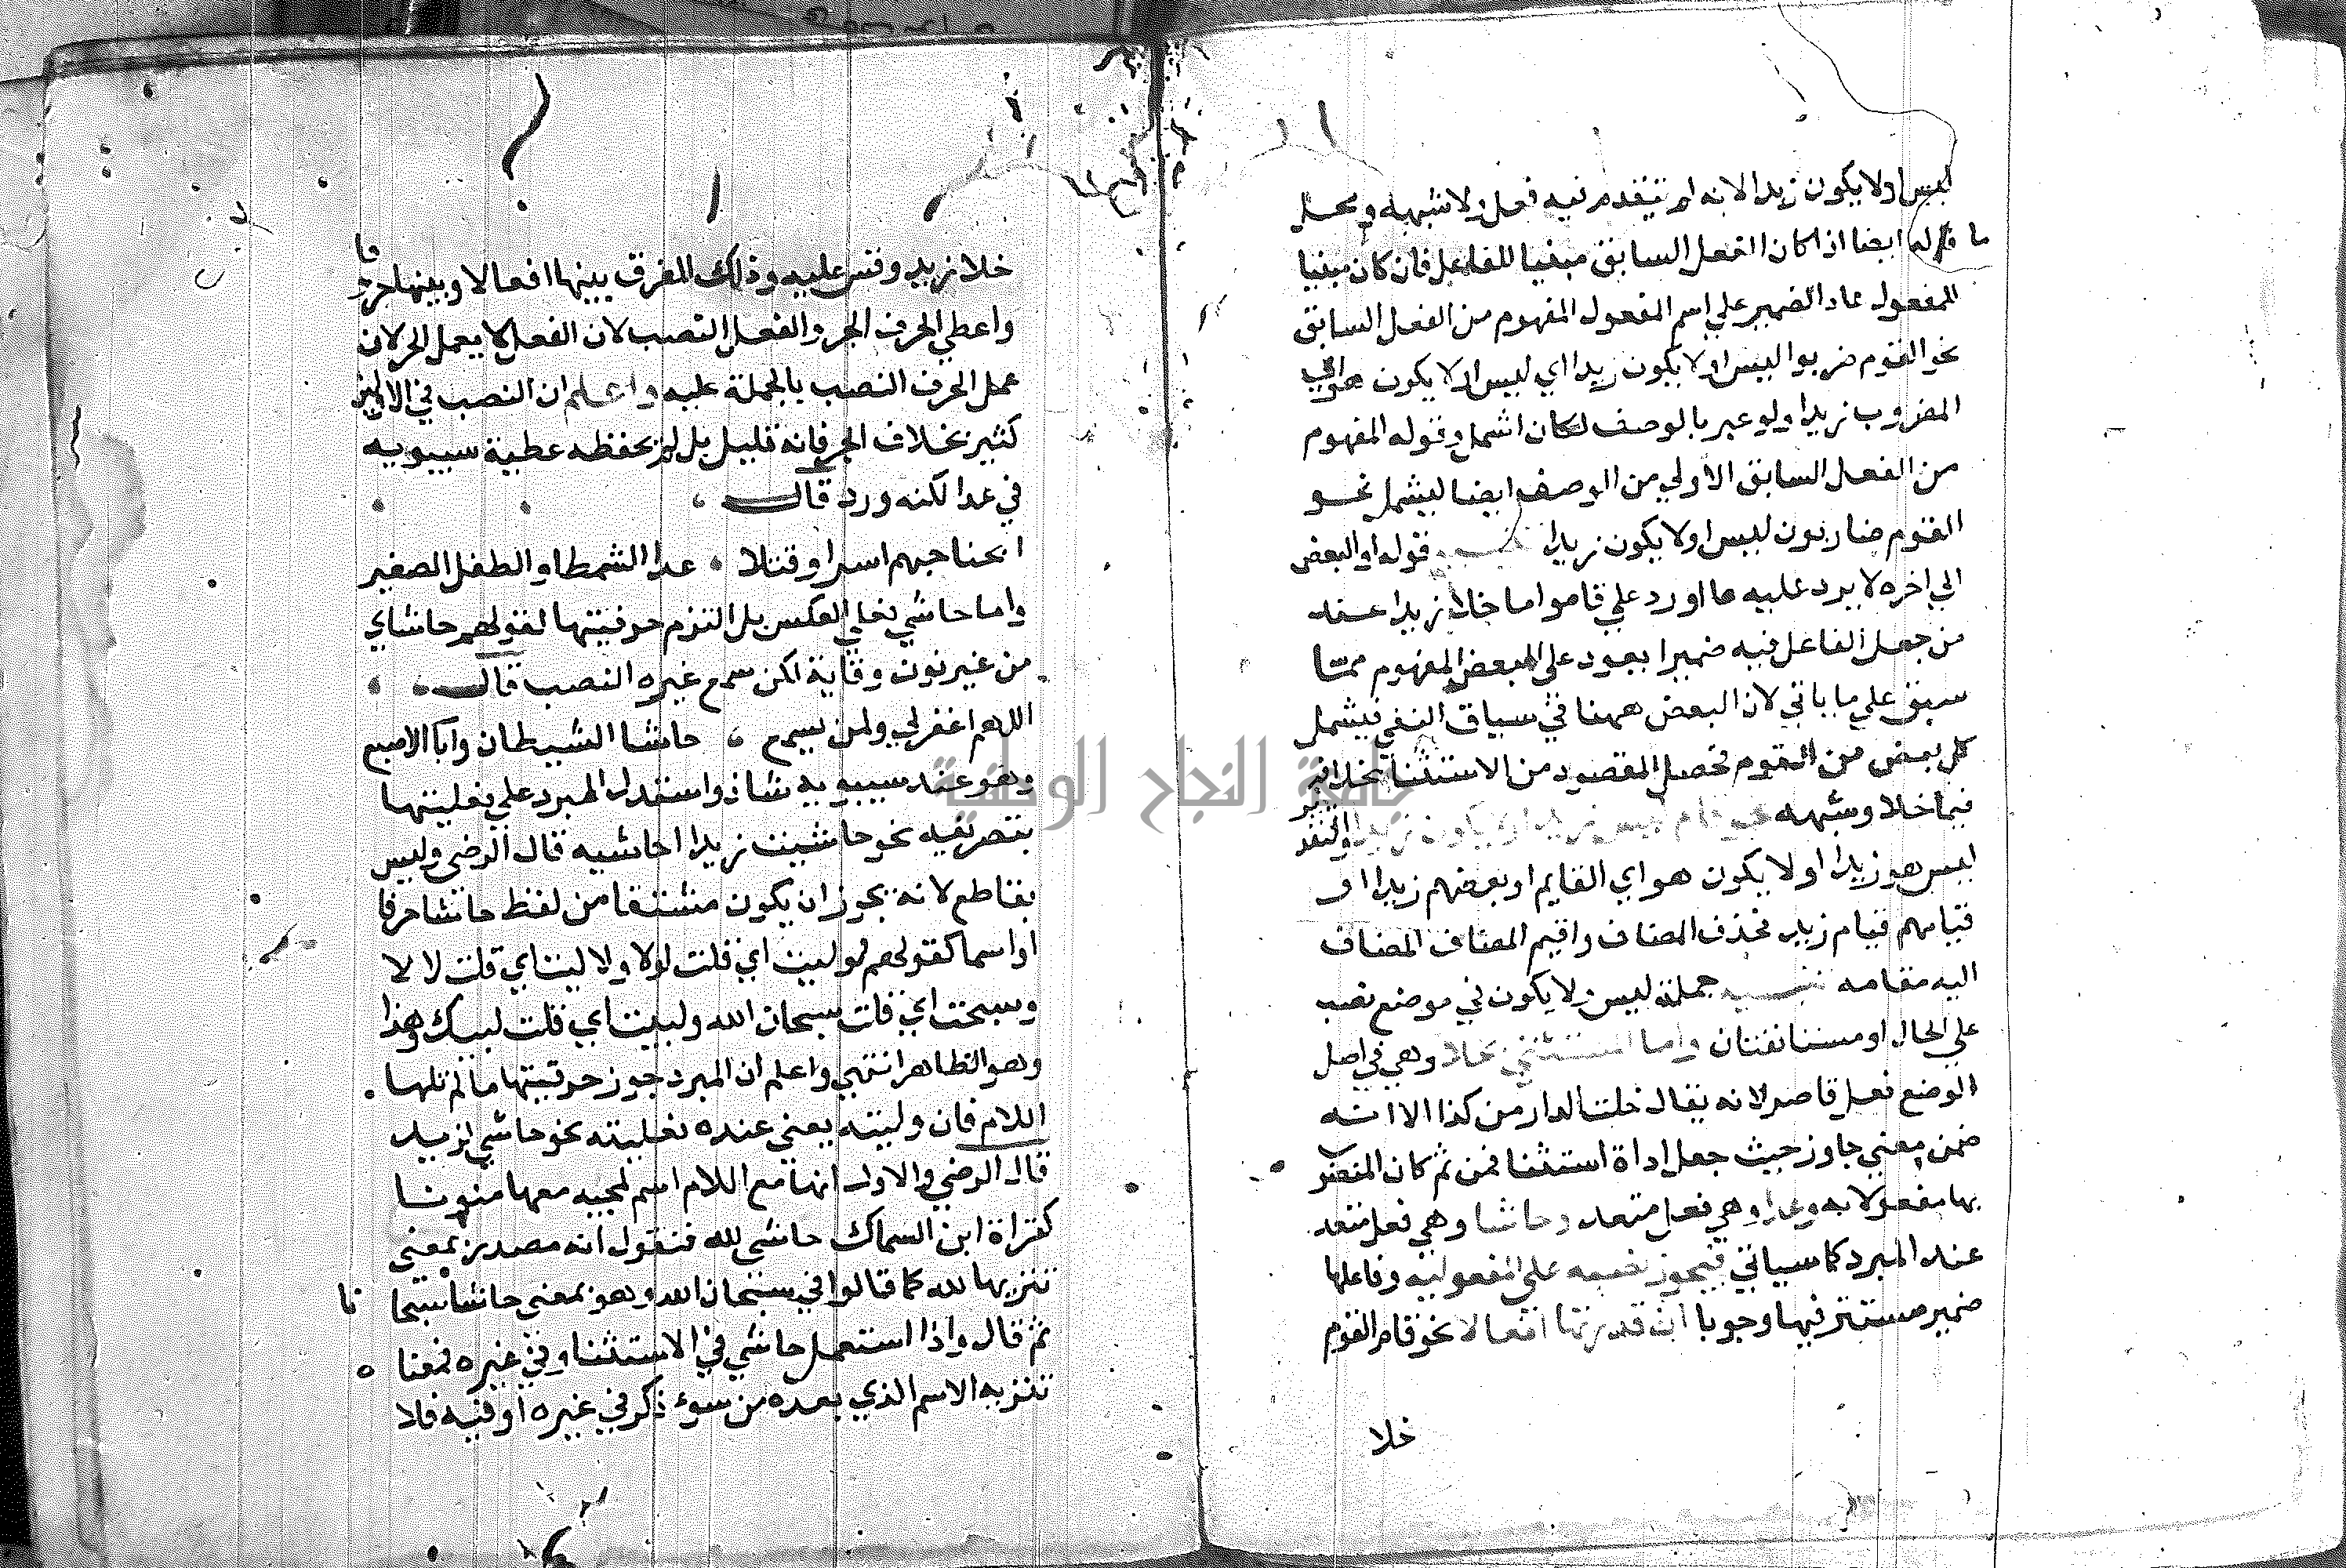 ليس او لا يكون زيدا لانه لم يتقدم فيه فعل ولا شبهه ومحل
ما قاله ايضا اذا كان الفعل السابق مبنيا للفاعل فان كان مبنيا
للمفعول عاد الضمير علي اسم المفعول المفهوم من الفعل السابق
نحو القوم ضربوا ليس او لا يكون زيدا اي ليس او لا يكون هو اي
المضروب زيدا ولو عبر بالوصف لكان اشمل وقوله المفهوم
من الفعل السابق الاولي من الوصف ايضا ليشمل نحو
القوم ضاربون ليس او لا يكون زيدا قوله او البعض
الي اخره لا يرد عليه ما اورد علي قاموا ما خلا زيدا عند
من جعل الفاعل فيه ضميرا يعود علي البعض المفهوم مما
سبق علي ما ياتي لان البعض ههنا في سياق النفي فيشمل
كل بعض من القوم فحصل المقصود من الاستثنا بخلافه
فيما خلا وشبهه زيدا او لا يكون زيدا والتقدير
ليس هو زيدا او لا يكون هو اي القايم او بعضهم زيدا او
قيامهم قيام زيد فحذف المضاف واقيم المضاف المضاف
اليه مقامه تنبيه جملة ليس ولا يكون في موضع نصب
علي الحال او مستانفتان واما المستثني بخلا وهي في اصل
الوضع فعل قاصر لانه يقال خلت الدار من كذا الا انه
ضمن معني جاوز حيث جعل اداة استثنا فمن ثم كان المنصوب
بها مفعولا به وعدا وهي فعل متعد وحاشا وهي فعل متعد
عند المبرد كما سياتي فيجوز نصبه علي المفعولية وفاعلها
ضمير مستتر فيها وجوبا ان قدرتها افعالا نحو قام القوم
خلا
خلا زيد وقس عليه وذلك للفرق بينها افعالا وبينها حرفا
واعطي الحرف الجر والفعل النصب لان الفعل لا يعمل الجر لان
عمل الحرف النصب بالجملة عليه واعلم ان النصب في الاولين
كثير بخلاف الجر فانه قليل بل لم يحفظه عطية سيبويه
في عدا لكنه ورد قال
ابحنا حيهم اسرا وقتلا عدا الشمطا والطفل الصغير
واما حاشي فعلي العكس بل التزم حرفيتها لقولهم حاشاي
من غير نون وقاية لكن سمع غيره النصب قال
اللهم اغفر لي ولمن يسمع حاشا الشيطان وابا الاصبع
وهو عند سيبويه شاذ واستدل المبرد علي فعليتها
بتصريفه نحو حاشيت زيدا احاشيه قال الرضي وليس
بقاطع لانه يجوز ان يكون مشتقا من لفظ حاشا حرفا
او اسما كقولهم لوليت اي قلت لولا ولا ليت اي قلت لا لا
وسبحت اي قلت سبحان الله ولبيت اي قلت لبيك وهذا
وهو الظاهر انتهي واعلم ان المبرد جوز حرفيتها ما لم تلها
اللام فان وليته يعني عنده فعليته نحو حاشي لزيد
قال الرضي والاولي انها مع اللام اسم لمجيه معها منونا
كقراة ابن السماك حاشي لله فنقول انه مصدر بمعني
تنزيها لله كما قالوا في سبحان الله وهو بمعني حاشا سبحانا
ثم قال واذا استعمل حاشي في الاستثنا وفي غيره فمعناه
تنزيه الاسم الذي بعده من سوء ذكر في غيره او فيه فلا
جامعة النجاح الوطنية